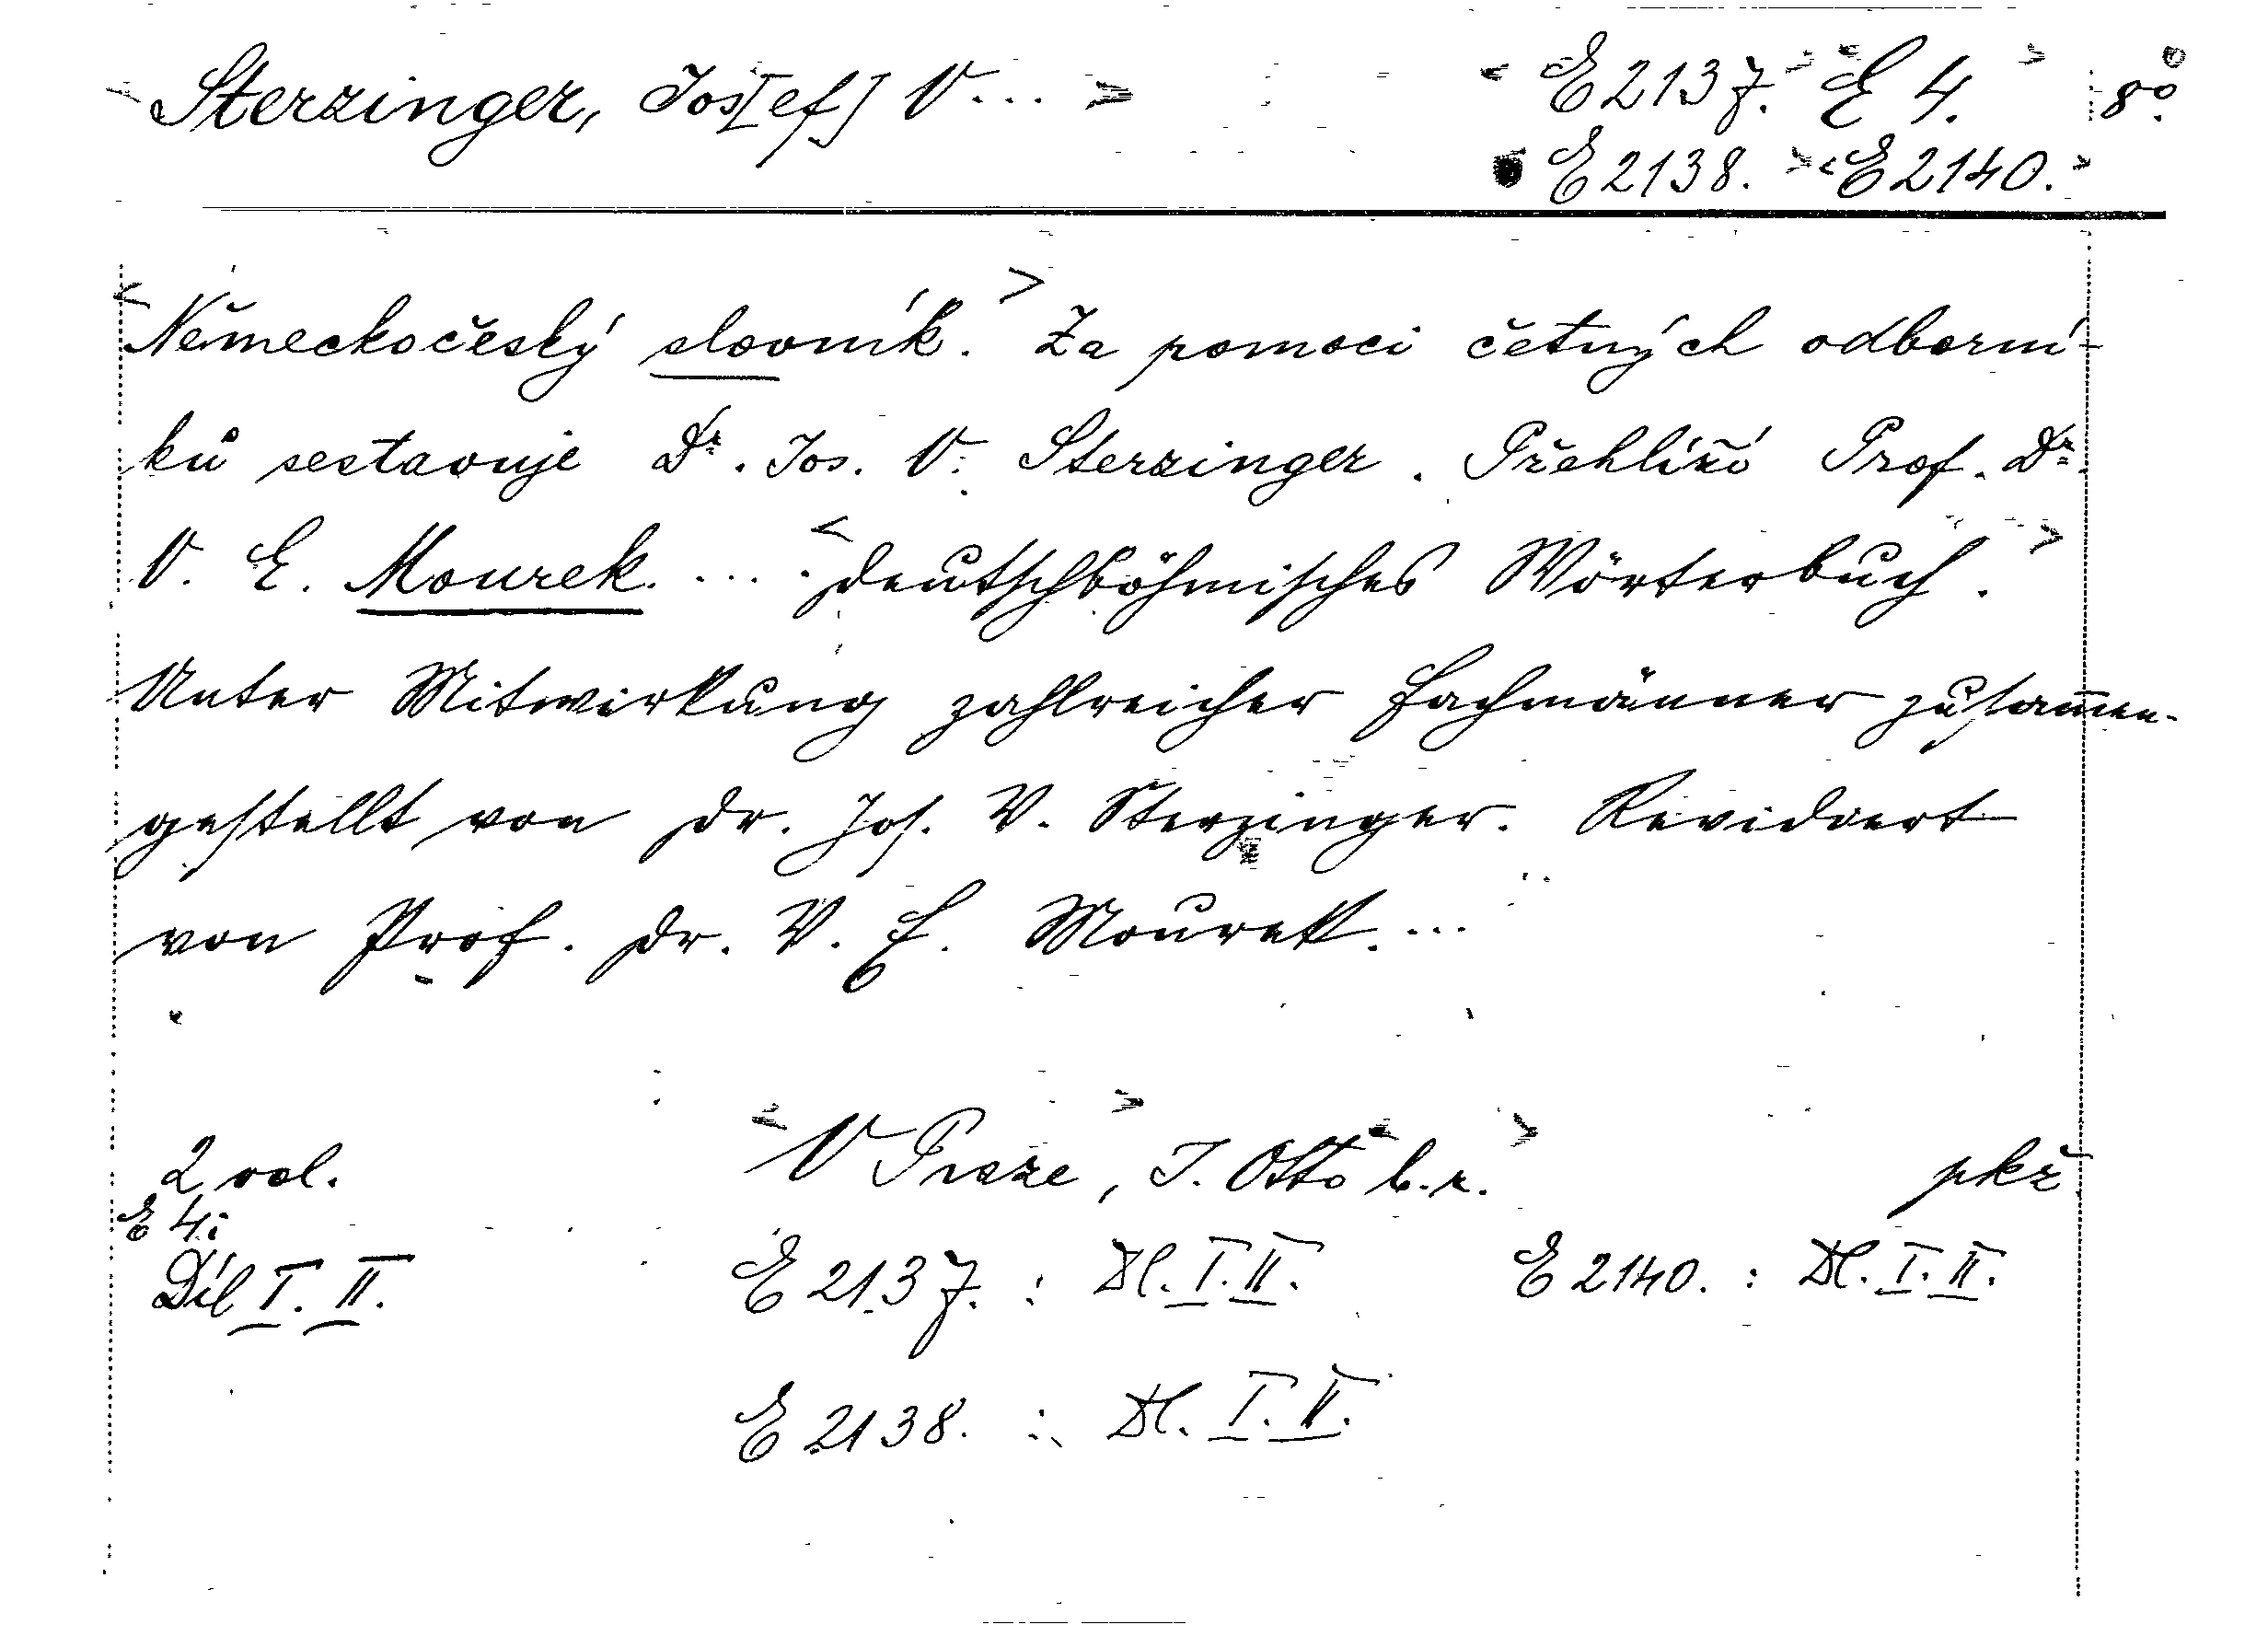 <Sterzinger, Jos[ef] V...> <E 2137.> <E 4.> 8°.
E 2138.> <E 2140.>
<Německočeský slovník.> Za pomoci četných odborní-
ků sestavuje Dr. Jos. V. Sterzinger. Přehlíží Prof. Dr.
V. E. Mourek. ... <Deutschböhmisches Wörterbuch.>
Unter Mitwirkung zahlreicher Fachmänner zusam̄en-
gestellt von Dr. Jos. V. Sterzinger. Revidiert
von Prof. Dr. V. E. Mourek. ...
2 vol. <V Praze>, J. Otto <b.r.> pkž
E 4:
Díl I. II. E 2137. : Dl. I. II. E 2140. : Dl. I. II.
E 2138. : Dl. I. II.